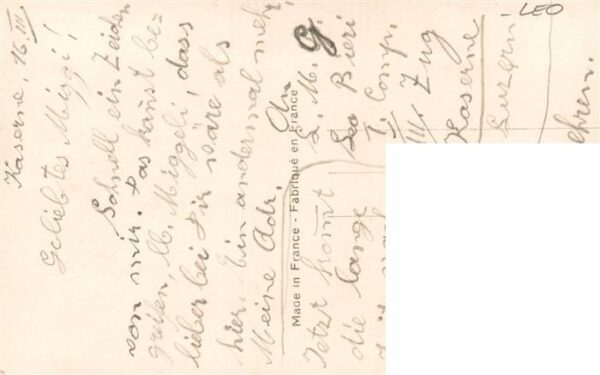 Kaserne, 16. III.
Geliebtes Miggi!
Schnell ein Zeichen
von mir. Das kanst be-
greifen, lb. Miggeli, dass
lieber bei Dir wäre als
hier. Ein andermal mehr.
Meine Adr.
Made in France - Fabriqué en France
L. M. G
Jetzt kommt
Leo Bieri
die lange
I. Comp.
III. Zug
Kaserne
Luzern
ehren.
LEO